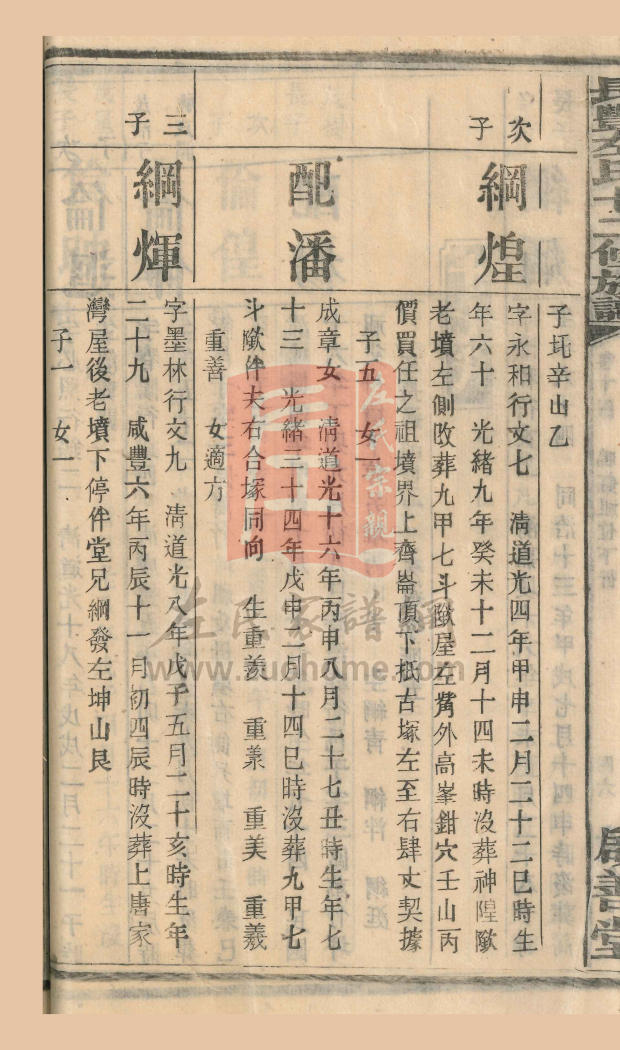 長豐左氏十二修族譜
啟善堂
子㘬辛山乙
次子
綱煌
字永和行文七 淸道光四年甲申二月二十二巳時生
年六十 光緒九年癸未十二月十四未時沒葬神隍
老墳左側改葬九甲七斗 屋左 外高峯鉗穴壬山丙
價買任之祖墳界上齊崙頂下抵古塚左至右肆丈契據
子五 女一
配潘
成章女 淸道光十六年丙申八月二十七丑時生年七
十三 光緒三十四年戊申二月十四巳時沒葬九甲七
斗 仵夫右合塚同向 生重羨 重 重美 重羲
重善 女適方
三子
綱煇
字墨林行文九 淸道光八年戊子五月二十亥時生年
二十九 咸豐六年丙辰十一月初四辰時沒葬上唐家
灣屋後老墳下停仵堂兄綱發左坤山艮
子一 女一
左氏宗親
左氏家譜網
www.zuohome.com